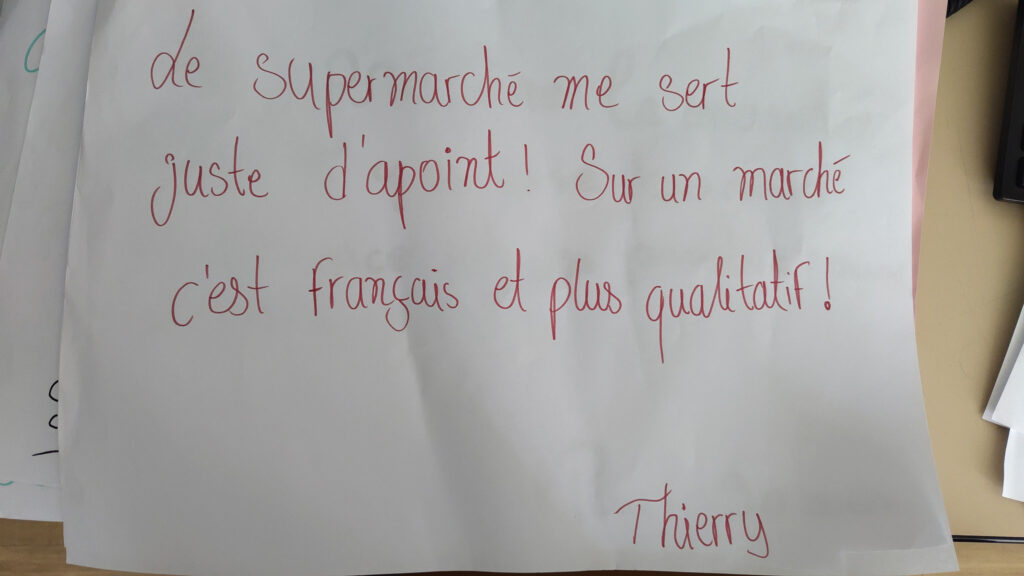 Le supermarché me sert
juste d'apoint ! Sur un marché
c'est français et plus qualitatif !
Thierry